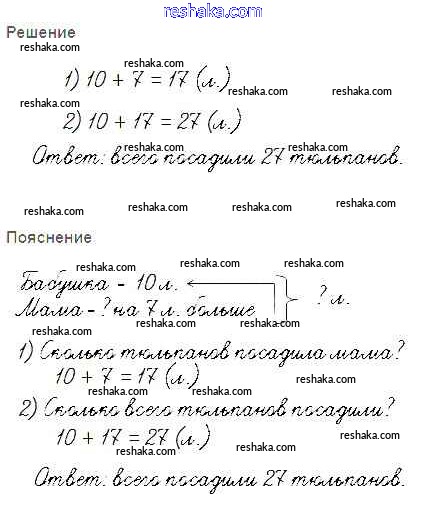 reshaka.com
Решение
reshaka.com
reshaka.com
1) 10 + 7 = 17 (л.)
reshaka.com reshaka.com
reshaka.com
2) 10 + 17 = 27 (л.)
reshaka.com reshaka.com
Ответ: всего посадили 27 тюльпанов.
reshaka.com reshaka.com reshaka.com reshaka.com
Пояснение
reshaka.com reshaka.com reshaka.com
Бабушка - 10 л.
Мама - ? на 7 л. больше ? л.
reshaka.com reshaka.com
1) Сколько тюльпанов посадила мама?
10 + 7 = 17 (л.)
reshaka.com
reshaka.com reshaka.com
2) Сколько всего тюльпанов посадили?
10 + 17 = 27 (л.)
reshaka.com
reshaka.com reshaka.com
Ответ: всего посадили 27 тюльпанов.
reshaka.com reshaka.com reshaka.com